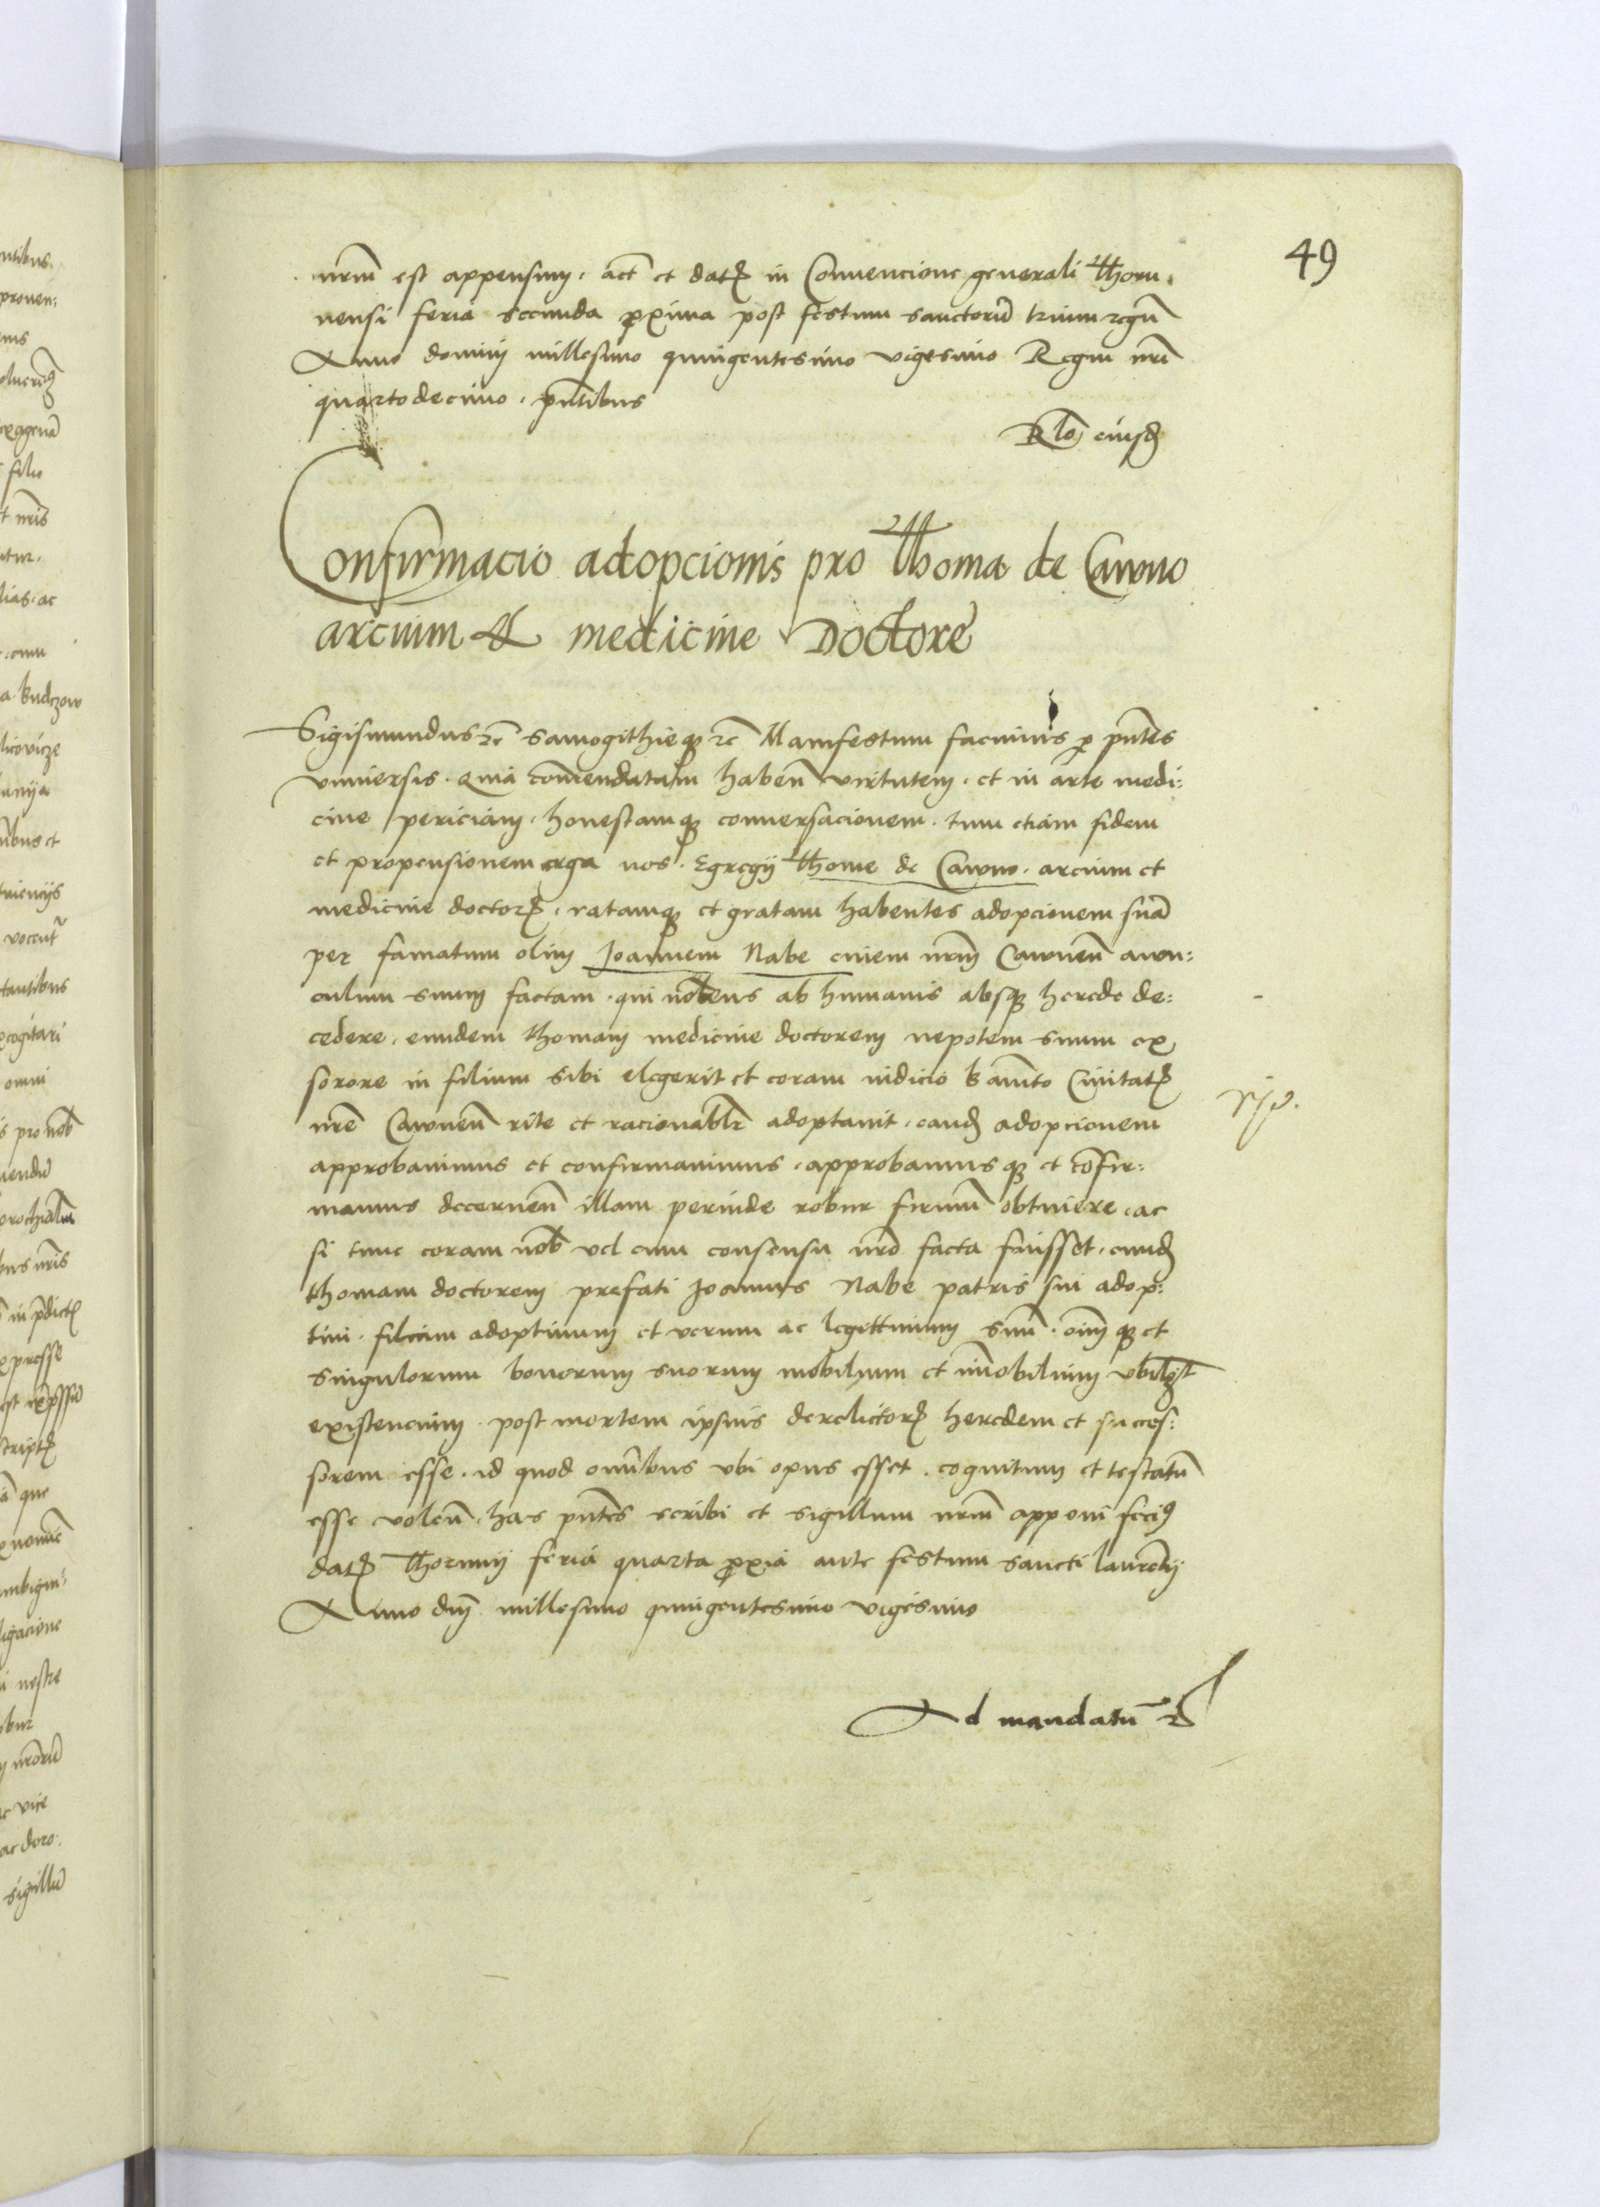 49
nrm̃ est appensum. act̃ et dat̃ in Conuencione generali Thoru-
nensi feria secunda p̱xima post festum sanctorũ trium regũ
Anno dominj millesimo quingentesimo vigesimo Regni nrĩ
quartodecimo. pñtibus
Rlõ eiusd̃
Confirmacio adopcionis pro Thoma de Cawno
arcium & medicine Doctore
Sigismundus rc̃ Samogithieqꝫ rc̃ Manifestum facimus p̱ pñtes
vniuersis. Quia com̃endatam habeñ virtutem. et in arte medi:
cine periciam. honestamqꝫ conuersacionem. tum etiam fidem
et propensionem erga nos. Egregij Thome de Cawno. arcium et
medicine doctor̃. ratamqꝫ et gratam habentes adopcionem suã
per famatum olim Joannem Nabe ciuem nrm̃ Cawneñ auun:
culum suum factam. qui nolens ab humanis absqꝫ herede de:
cedere. eundem Thomam medicine doctorem nepotem suum ex
sorore in filium sibi elegerit et coram iudicio bañito Ciuitat̃
nrẽ Cawneñ rite et racionabl̃r adoptauit. eand̃ adopcionem
approbauimus et confirmauimus. approbamusqꝫ et cõfir:
mamus decerneñ illam perinde robur firmũ obtinere. ac
si tunc coram nob̃ vel cum consensu nrõ facta fuisset. eund̃
Thomam doctorem prefati Joannis Nabe patris sui adop:
tiui. filium adoptiuum et verum ac legittimum suũ. oĩmqꝫ et
singulorum bonorum suorum mobilium et im̃obilium vbilib̃t
existencium. post mortem ipsius derelictor̃ heredem et succes:
sorem esse. id quod omñibus vbi opus esset. cognitum et testatũ
esse voleñ. has pñtes scribi et sigillum nrm̃ apponi fecimꝰ
dat̃ Thorunij feria quarta p̱xiã ante festum sancti laurẽtij
Anno dnĩ millesimo quingentesimo vigesimo
Ad mandatũ